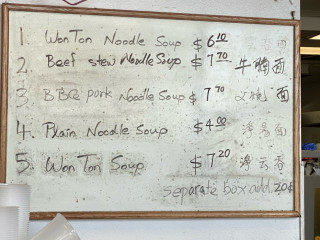 1. Won Ton Noodle Soup $6.10
2. Beef stew Noodle Soup $7.70 牛腩面
3. BBQ pork Noodle Soup $7.70 义烧面
4. Plain Noodle Soup $4.00 净面
5. Won Ton Soup $7.20 净云吞
separate box add 20¢